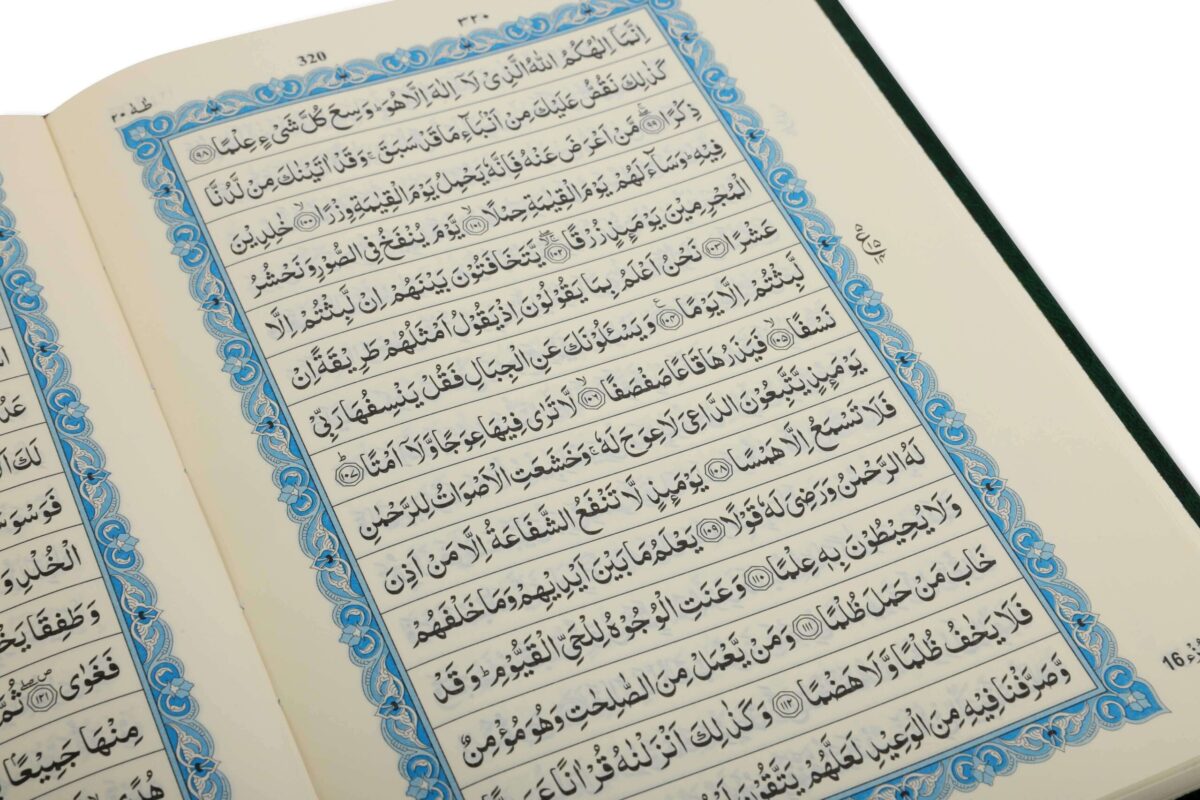 ٣٢٠
320
طٰهٰ ٢٠
اِنَّمَآ اِلٰهُكُمُ اللّٰهُ الَّذِىْ لَآ اِلٰهَ اِلَّا هُوَ ؕ وَسِعَ كُلَّ شَىْءٍ عِلْمًا ﴿٩٨﴾
كَذٰلِكَ نَقُصُّ عَلَيْكَ مِنْ اَنْۢبَآءِ مَا قَدْ سَبَقَ ۚ وَقَدْ اٰتَيْنٰكَ مِنْ لَّدُنَّا
ذِكْرًا ﴿٩٩﴾ مَنْ اَعْرَضَ عَنْهُ فَاِنَّهٗ يَحْمِلُ يَوْمَ الْقِيٰمَةِ وِزْرًا ﴿١٠٠﴾ خٰلِدِيْنَ
فِيْهِ ؕ وَسَآءَ لَهُمْ يَوْمَ الْقِيٰمَةِ حِمْلًا ﴿١٠١﴾ يَّوْمَ يُنْفَخُ فِى الصُّوْرِ وَنَحْشُرُ
الْمُجْرِمِيْنَ يَوْمَئِذٍ زُرْقًا ﴿١٠٢﴾ يَّتَخَافَتُوْنَ بَيْنَهُمْ اِنْ لَّبِثْتُمْ اِلَّا
عَشْرًا ﴿١٠٣﴾ نَحْنُ اَعْلَمُ بِمَا يَقُوْلُوْنَ اِذْ يَقُوْلُ اَمْثَلُهُمْ طَرِيْقَةً اِنْ
لَّبِثْتُمْ اِلَّا يَوْمًا ﴿١٠٤﴾ وَيَسْـَٔلُوْنَكَ عَنِ الْجِبَالِ فَقُلْ يَنْسِفُهَا رَبِّىْ
نَسْفًا ﴿١٠٥﴾ فَيَذَرُهَا قَاعًا صَفْصَفًا ﴿١٠٦﴾ لَّا تَرٰى فِيْهَا عِوَجًا وَّلَآ اَمْتًا ﴿١٠٧﴾
يَوْمَئِذٍ يَّتَّبِعُوْنَ الدَّاعِىَ لَا عِوَجَ لَهٗ ۚ وَخَشَعَتِ الْاَصْوَاتُ لِلرَّحْمٰنِ
فَلَا تَسْمَعُ اِلَّا هَمْسًا ﴿١٠٨﴾ يَوْمَئِذٍ لَّا تَنْفَعُ الشَّفَاعَةُ اِلَّا مَنْ اَذِنَ
لَهُ الرَّحْمٰنُ وَرَضِىَ لَهٗ قَوْلًا ﴿١٠٩﴾ يَعْلَمُ مَا بَيْنَ اَيْدِيْهِمْ وَمَا خَلْفَهُمْ
وَلَا يُحِيْطُوْنَ بِهٖ عِلْمًا ﴿١١٠﴾ وَعَنَتِ الْوُجُوْهُ لِلْحَىِّ الْقَيُّوْمِ ؕ وَقَدْ
خَابَ مَنْ حَمَلَ ظُلْمًا ﴿١١١﴾ وَمَنْ يَّعْمَلْ مِنَ الصّٰلِحٰتِ وَهُوَ مُؤْمِنٌ
فَلَا يَخٰفُ ظُلْمًا وَّلَا هَضْمًا ﴿١١٢﴾ وَكَذٰلِكَ اَنْزَلْنٰهُ قُرْاٰنًا
وَّصَرَّفْنَا فِيْهِ مِنَ الْوَعِيْدِ لَعَلَّهُمْ يَتَّقُوْنَ
16
لَكَ
فَوَسْوَسَ
الْخُلْدِ وَ
وَطَفِقَا
فَغَوٰى ﴿١٢١﴾ ثُمَّ
مِنْهَا جَمِيْعًا
هُدًى